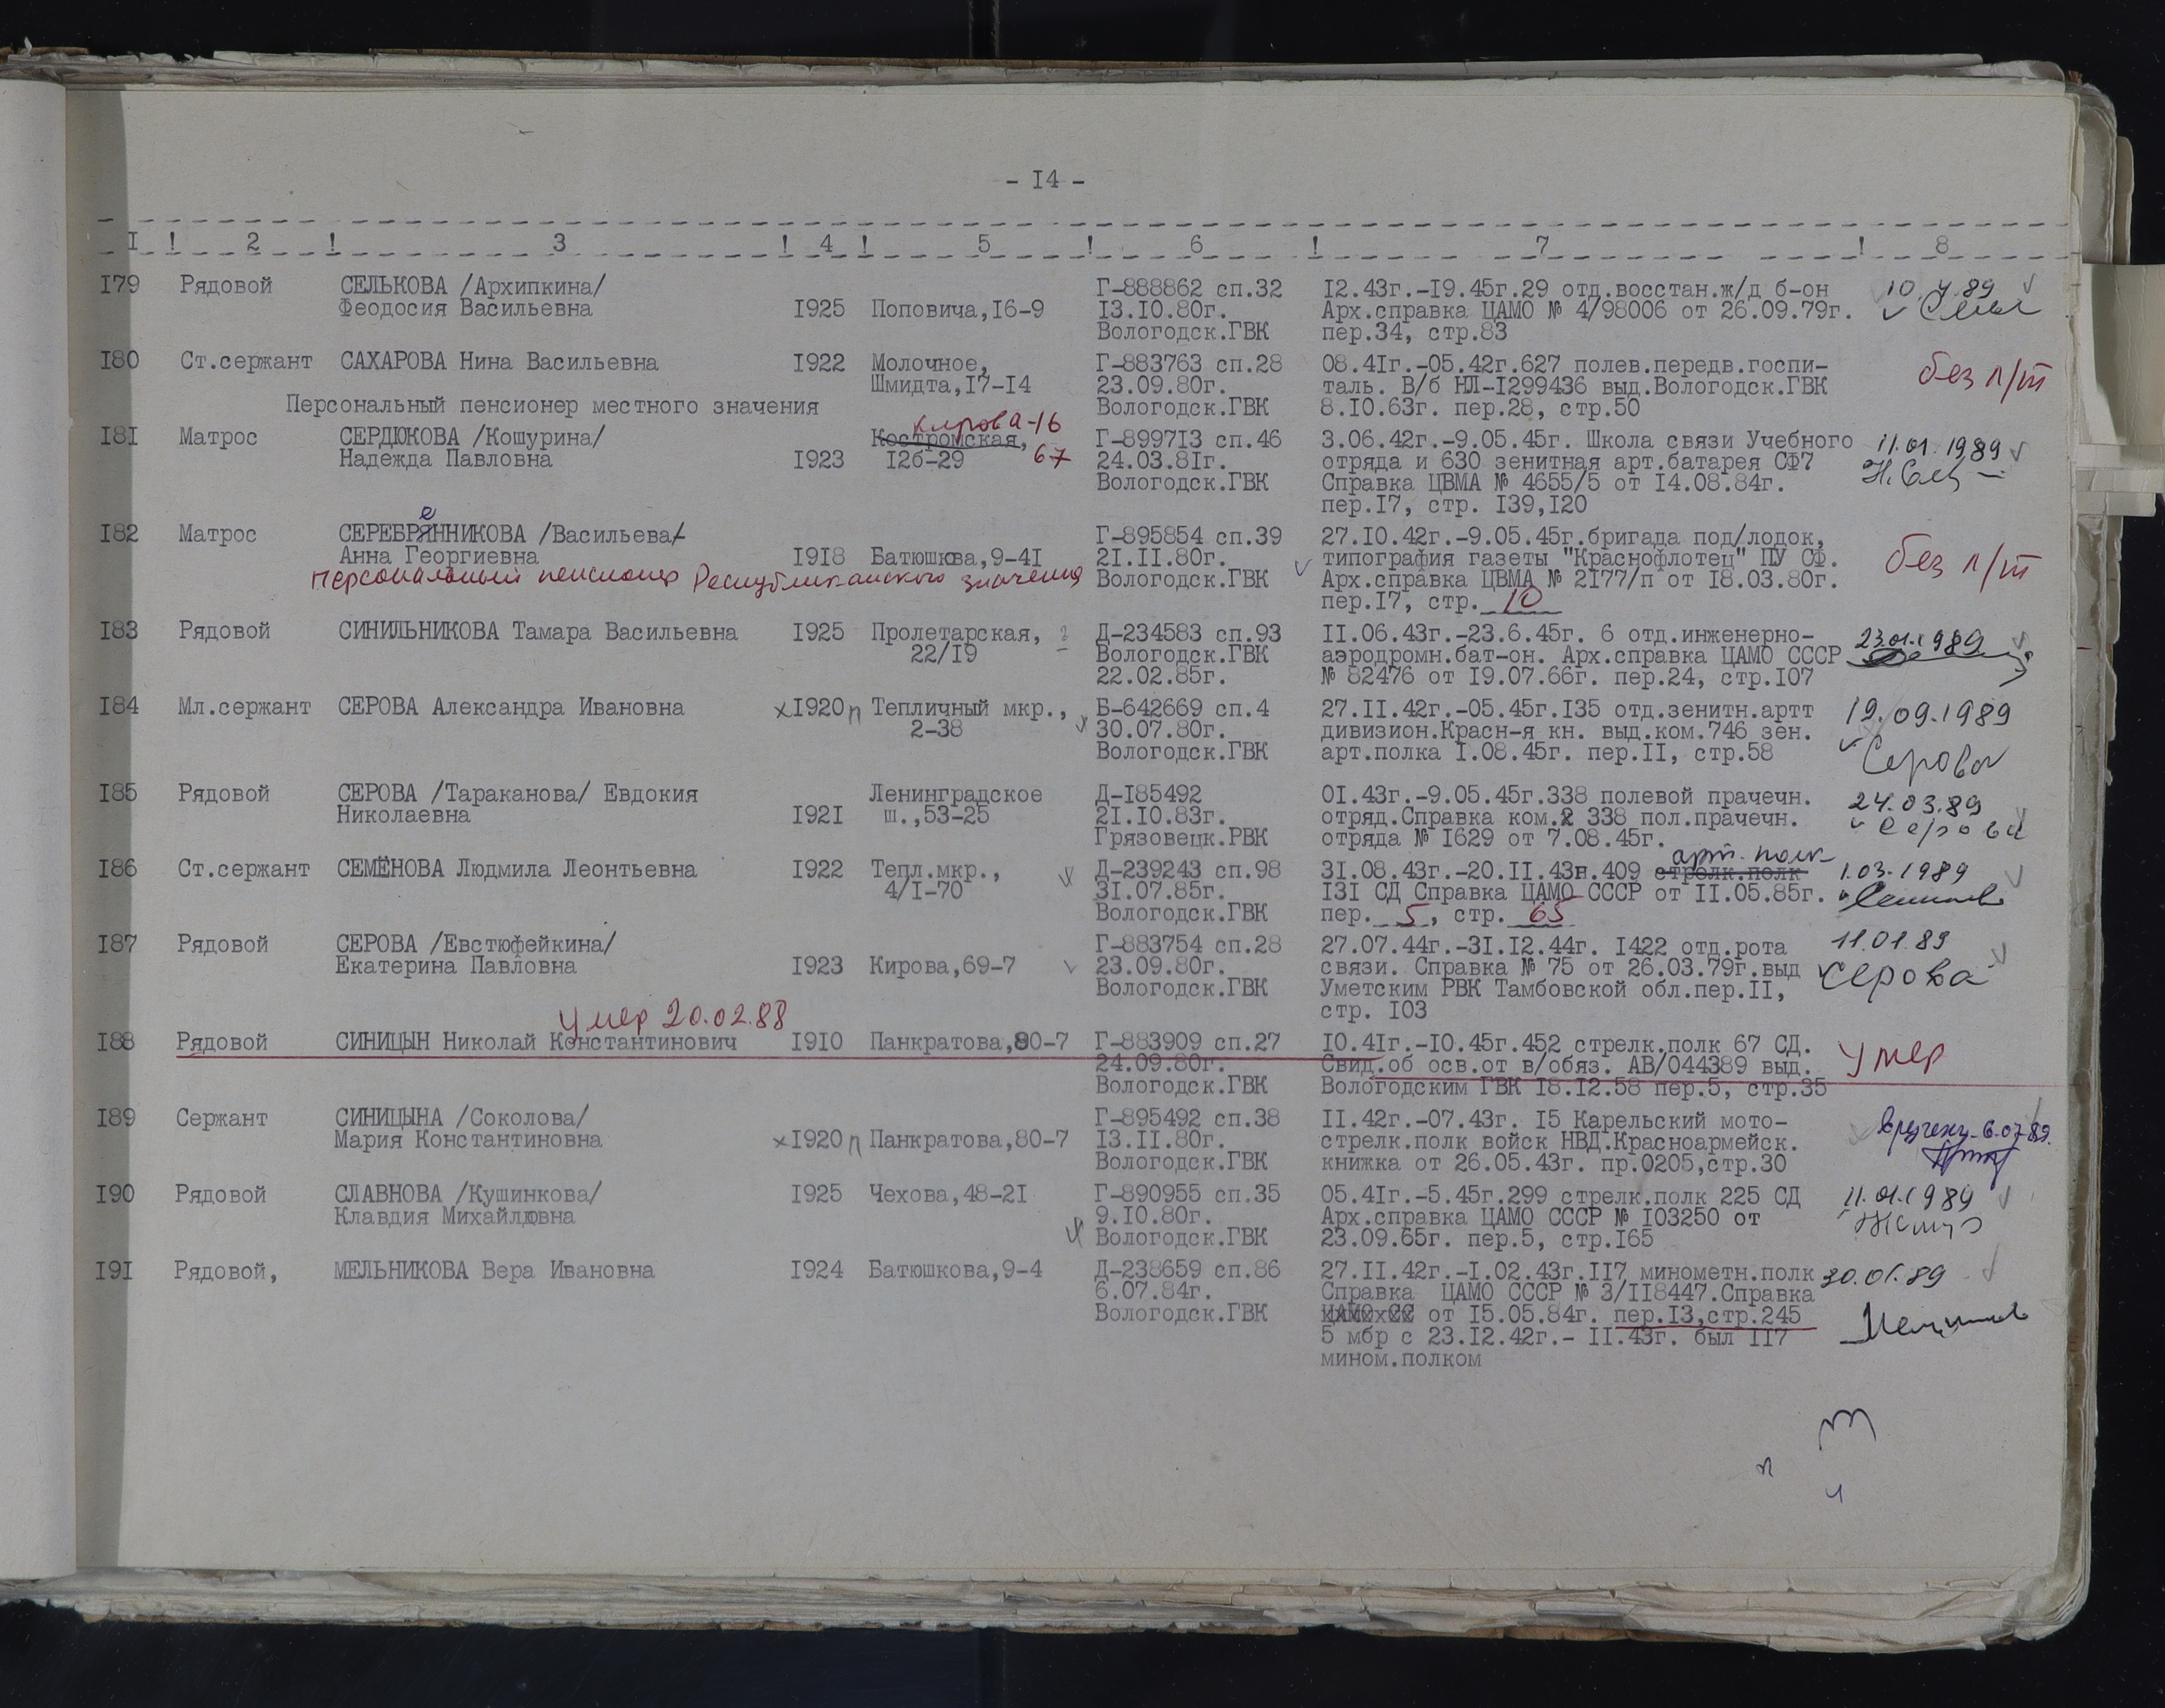 - I4 -
I ! 2 ! 3 ! 4 ! 5 ! 6 ! 7 ! 8
I79 Рядовой СЕЛЬКОВА /Архипкина/ Г-888862 сп.32 I2.43г.-I9.45г.29 отд.восстан.ж/д б-он
Феодосия Васильевна I925 Поповича,I6-9 I3.I0.80г. Арх.справка ЦАМО № 4/98006 от 26.09.79г.
Вологодск.ГВК пер.34, стр.83
I80 Ст.сержант САХАРОВА Нина Васильевна I922 Молочное, Г-883763 сп.28 08.4Iг.-05.42г.627 полев.передв.госпи- без п/т
Шмидта,I7-I4 23.09.80г. таль. В/б НЛ-I299436 выд.Вологодск.ГВК
Персональный пенсионер местного значения Вологодск.ГВК 8.I0.63г. пер.28, стр.50
Кирова-16
I8I Матрос СЕРДЮКОВА /Кошурина/ Костромская, Г-8997I3 сп.46 3.06.42г.-9.05.45г. Школа связи Учебного 11.01.1989
Надежда Павловна I923 I2б-29 67 24.03.8Iг. отряда и 630 зенитная арт.батарея СФ7
Вологодск.ГВК Справка ЦВМА № 4655/5 от I4.08.84г.
пер.I7, стр. I39,I20
е
I82 Матрос СЕРЕБРЯННИКОВА /Васильева/ Г-895854 сп.39 27.I0.42г.-9.05.45г.бригада под/лодок,
Анна Георгиевна I9I8 Батюшква,9-4I 2I.II.80г. типография газеты "Краснофлотец" ПУ СФ. без п/т
персональный пенсионер Республиканского значения Вологодск.ГВК Арх.справка ЦВМА № 2I77/п от I8.03.80г.
пер.I7, стр. 10
I83 Рядовой СИНИЛЬНИКОВА Тамара Васильевна I925 Пролетарская, ? Д-234583 сп.93 II.06.43г.-23.6.45г. 6 отд.инженерно- 23.01.1989
22/I9 Вологодск.ГВК аэродромн.бат-он. Арх.справка ЦАМО СССР
22.02.85г. № 82476 от I9.07.66г. пер.24, стр.I07
I84 Мл.сержант СЕРОВА Александра Ивановна хI920п Тепличный мкр., Б-642669 сп.4 27.II.42г.-05.45г.I35 отд.зенитн.артт 19.09.1989
2-38 30.07.80г. дивизион.Красн-я кн. выд.ком.746 зен.
Вологодск.ГВК арт.полка I.08.45г. пер.II, стр.58 Серова
I85 Рядовой СЕРОВА /Тараканова/ Евдокия Ленинградское Д-I85492 0I.43г.-9.05.45г.338 полевой прачечн. 24.03.89
Николаевна I92I ш.,53-25 2I.I0.83г. отряд.Справка ком.2 338 пол.прачечн. Серова
Грязовецк.РВК отряда № I629 от 7.08.45г.
арт. полк
I86 Ст.сержант СЕМЁНОВА Людмила Леонтьевна I922 Тепл.мкр., Д-239243 сп.98 3I.08.43г.-20.II.43н.409 стрелк.полк 1.03.1989
4/I-70 3I.07.85г. I3I СД Справка ЦАМО СССР от II.05.85г.
Вологодск.ГВК пер. 5, стр. 65
I87 Рядовой СЕРОВА /Евстюфейкина/ Г-883754 сп.28 27.07.44г.-3I.I2.44г. I422 отд.рота 11.01.89
Екатерина Павловна I923 Кирова,69-7 23.09.80г. связи. Справка № 75 от 26.03.79г.выд Серова
Вологодск.ГВК Уметским РВК Тамбовской обл.пер.II,
умер 20.02.88 стр. I03
I88 Рядовой СИНИЦЫН Николай Константинович I9I0 Панкратова,80-7 Г-883909 сп.27 I0.4Iг.-I0.45г.452 стрелк.полк 67 СД. умер
24.09.80г. Свид.об осв.от в/обяз. АВ/044389 выд.
Вологодск.ГВК Вологодским ГВК I8.I2.58 пер.5, стр.35
I89 Сержант СИНИЦЫНА /Соколова/ Г-895492 сп.38 II.42г.-07.43г. I5 Карельский мото- 6.07.89.
Мария Константиновна хI920п Панкратова,80-7 I3.II.80г. стрелк.полк войск НВД.Красноармейск.
Вологодск.ГВК книжка от 26.05.43г. пр.0205,стр.30
I90 Рядовой СЛАВНОВА /Кушинкова/ I925 Чехова,48-2I Г-890955 сп.35 05.4Iг.-5.45г.299 стрелк.полк 225 СД 11.01.1989
Клавдия Михайловна 9.I0.80г. Арх.справка ЦАМО СССР № I03250 от
Вологодск.ГВК 23.09.65г. пер.5, стр.I65
I9I Рядовой, МЕЛЬНИКОВА Вера Ивановна I924 Батюшкова,9-4 Д-238659 сп.86 27.II.42г.-I.02.43г.II7 минометн.полк 30.01.89
6.07.84г. Справка ЦАМО СССР № 3/II8447.Справка
Вологодск.ГВК ЦАМО СС от I5.05.84г. пер.I3,стр.245
5 мбр с 23.I2.42г.- II.43г. был II7
мином.полком